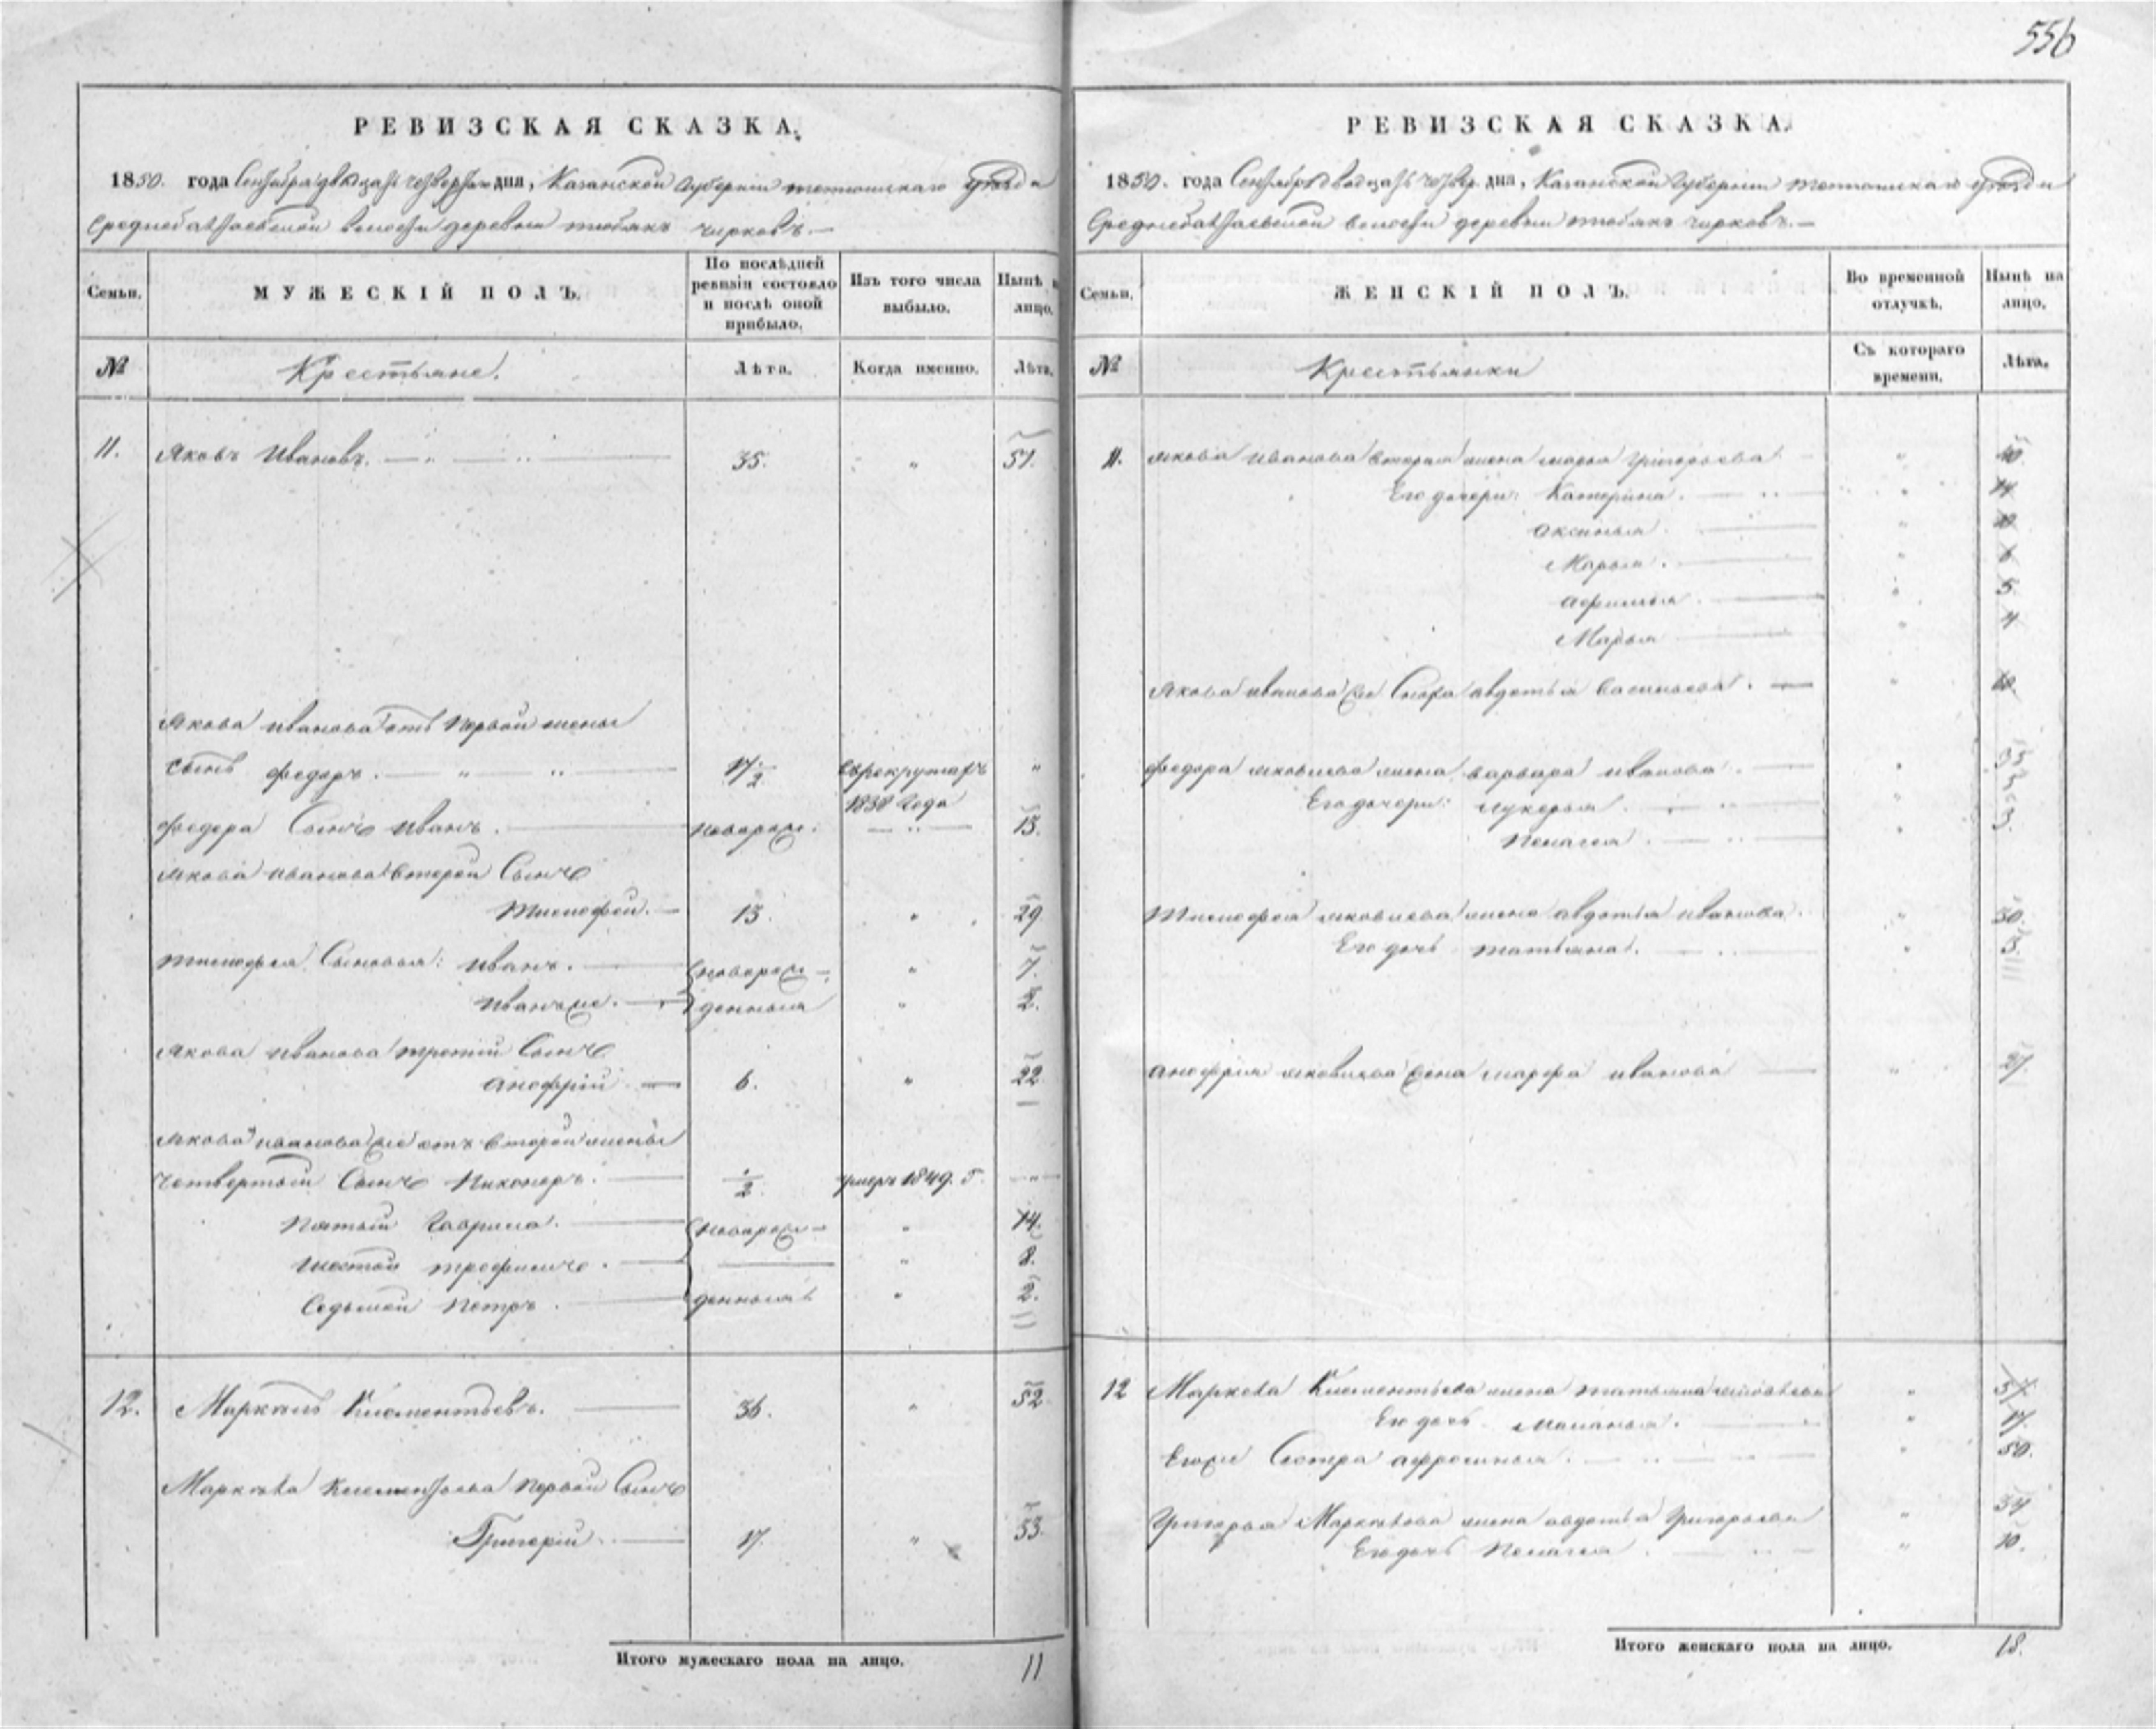 556
РЕВИЗСКАЯ СКАЗКА.
1850. года Сентября двадцать четвертого дня, Казанской Губернии тетюшскаго уѣзда
Среднебалтаевской волости деревни тюбякъ чирковъ.—
Семьи.
МУЖЕСКІЙ ПОЛЪ.
По послѣдней ревизіи состояло и послѣ оной прибыло.
Изъ того числа выбыло.
Нынѣ на лицо.
№
Крестьяне.
Лѣта.
Когда именно.
Лѣта.
11. Яковъ Ивановъ. 35. " 51.
Якова Иванова отъ первой жены
сынъ федоръ. 17 1/2 въ рекрутахъ "
1838 года
федора Сынъ Иванъ. новорож. 15.
Якова Иванова второй Сынъ
Тимофей. 13. " 29
Тимофея Сыновья: Иванъ. новорож- " 7.
Иванъ же. денныя " 2.
Якова Иванова третій Сынъ
Анофрій 6. " 22
Якова Иванова же отъ второй жены
четвертый Сынъ Никоноръ. 1/2 умеръ 1849. г.
пятый Гаврила. новорож- " 14.
шестой трофимъ. " 8.
Седьмой петръ. денныя " 2.
12. Маркелъ Клементьевъ. 36. " 52
Маркела Клементьева первый Сынъ
Григорій 17. " 33.
Итого мужескаго пола на лицо. 11
РЕВИЗСКАЯ СКАЗКА.
1850. года Сентября двадцать четвер. дня, Казанской Губернии тетюшскаго уѣзда
Среднебалтаевской волости деревни тюбякъ чирковъ.—
Семьи.
ЖЕНСКІЙ ПОЛЪ.
Во временной отлучкѣ.
Нынѣ на лицо.
№
Крестьянки
Съ котораго времени.
Лѣта.
11. Якова Иванова вторая жена марья Григорьева " 40.
Его дочери: Катерина. " 14
Аксинья. "
Марья. " 6
Афимья. " 5.
Марья " 4
Якова Иванова же Сноха авдотья васильева. "
федора яковлева жена варвара иванова. " 35
Его дочери: лукерья. " 5
Пелагея. " 3.
Тимофея яковлева жена авдотья иванова. " 30.
Его дочь татьяна. " 3.
Анофрія яковлева жена марфа иванова " 21.
12 Маркела Клементьева жена татьяна " 57.
Его дочь маланья. " 17.
Его же Сестра афросинья. " 50.
Григорья Маркелова жена авдотья Григорьева " 34
Его дочь Пелагея " 10.
Итого женскаго пола на лицо. 18.